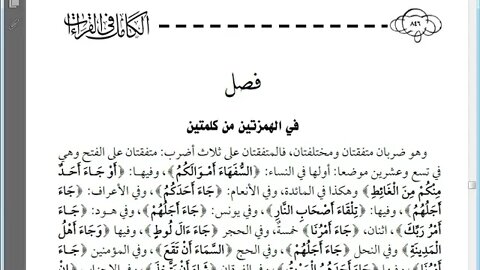 ٨٤٦
الكامل في القراءات
فصل
في الهمزتين من كلمتين
وهو ضربان متفقتان ومختلفتان، فالمتفقتان على ثلاث أضرب: متفقتان على الفتح وهي
في تسع وعشرين موضعا: أولها في النساء: ﴿السُّفَهَاءَ أَمْوَالَكُمُ﴾، وفيها: ﴿أَوْ جَاءَ أَحَدٌ
مِنْكُمْ مِنَ الْغَائِطِ﴾ وهكذا في المائدة، وفي الأنعام: ﴿جَاءَ أَحَدَكُمُ﴾، وفي الأعراف: ﴿جَاءَ
أَجَلُهُمْ﴾، وفيها: ﴿تِلْقَاءَ أَصْحَابِ النَّارِ﴾، وفي يونس: ﴿جَاءَ أَجَلُهُمْ﴾، وفي هود: ﴿جَاءَ
أَمْرُ رَبِّكَ﴾، اثنان، ﴿جَاءَ أَمْرُنَا﴾ خمسة، وفي الحجر ﴿جَاءَ آلَ لُوطٍ﴾، وفيها ﴿وَجَاءَ أَهْلُ
الْمَدِينَةِ﴾ وفي النحل ﴿جَاءَ أَجَلُهُمْ﴾، وفي الحج ﴿السَّمَاءَ أَنْ تَقَعَ﴾، وفي المؤمنين ﴿جَاءَ